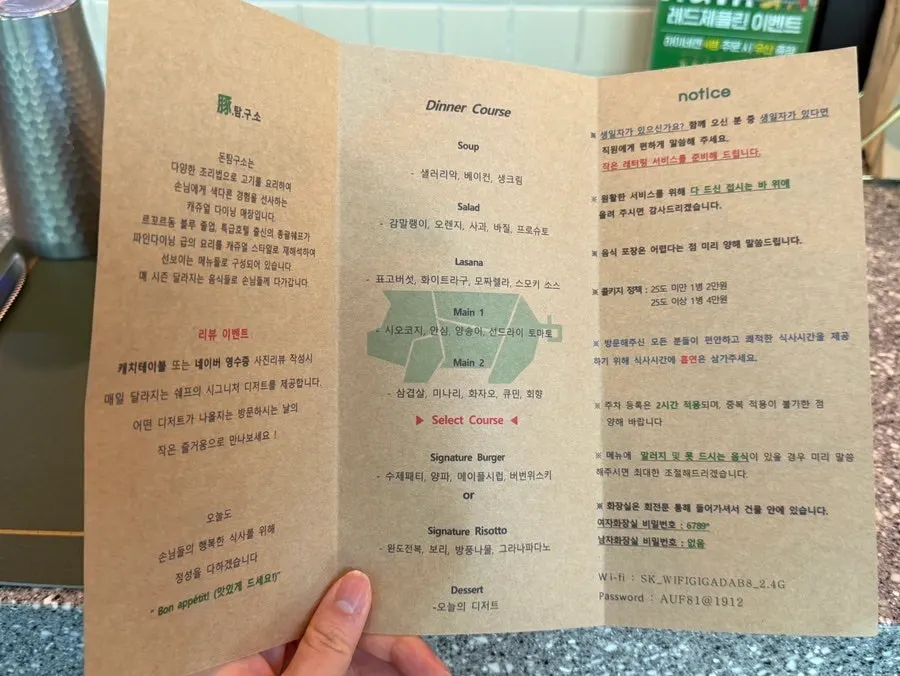 레드제플린 이벤트
豚.탐.구.소
돈탐구소는
다양한 조리법으로 고기를 요리하여
손님에게 색다른 경험을 선사하는
캐쥬얼 다이닝 매장입니다.
르꼬르동 블루 졸업, 특급호텔 출신의 총괄쉐프가
파인다이닝 급의 요리를 캐쥬얼 스타일로 재해석하여
선보이는 메뉴들로 구성되어 있습니다
매 시즌 달라지는 음식들로 손님들께 다가갑니다.
리뷰 이벤트
캐치테이블 또는 네이버 영수증 사진리뷰 작성시
매일 달라지는 쉐프의 시그니처 디저트를 제공합니다.
어떤 디저트가 나올지는 방문하시는 날의
작은 즐거움으로 만나보세요 !
오늘도
손님들의 행복한 식사를 위해
정성을 다하겠습니다
" Bon appétit! (맛있게 드세요!)"
Dinner Course
Soup
- 샐러리악, 베이컨, 생크림
Salad
- 감말랭이, 오렌지, 사과, 바질, 프로슈토
Lasana
- 표고버섯, 화이트라구, 모짜렐라, 스모키 소스
Main 1
- 시오코지, 안심, 양송이, 선드라이 토마토
Main 2
- 삼겹살, 미나리, 화자오, 큐민, 회향
▶ Select Course ◀
Signature Burger
- 수제패티, 양파, 메이플시럽, 버번위스키
or
Signature Risotto
- 완도전복, 보리, 방풍나물, 그라나파다노
Dessert
-오늘의 디저트
notice
※ 생일자가 있으신가요? 함께 오신 분 중 생일자가 있다면
직원에게 편하게 말씀해 주세요.
작은 레터링 서비스를 준비해 드립니다.
※ 원활한 서비스를 위해 다 드신 접시는 바 위에
올려 주시면 감사드리겠습니다.
※ 음식 포장은 어렵다는 점 미리 양해 말씀드립니다.
※ 콜키지 정책 : 25도 미만 1병 2만원
25도 이상 1병 4만원
※ 방문해주신 모든 분들이 편안하고 쾌적한 식사시간을 제공
하기 위해 식사시간에 흡연은 삼가주세요.
※ 주차 등록은 2시간 적용되며, 중복 적용이 불가한 점
양해 바랍니다
※ 메뉴에 알러지 및 못 드시는 음식이 있을 경우 미리 말씀
해주시면 최대한 조절해드리겠습니다.
※ 화장실은 회전문 통해 들어가셔서 건물 안에 있습니다.
여자화장실 비밀번호 : 6789*
남자화장실 비밀번호 : 없음
Wi-fi : SK_WIFIGIGADAB8_2.4G
Password : AUF81@1912